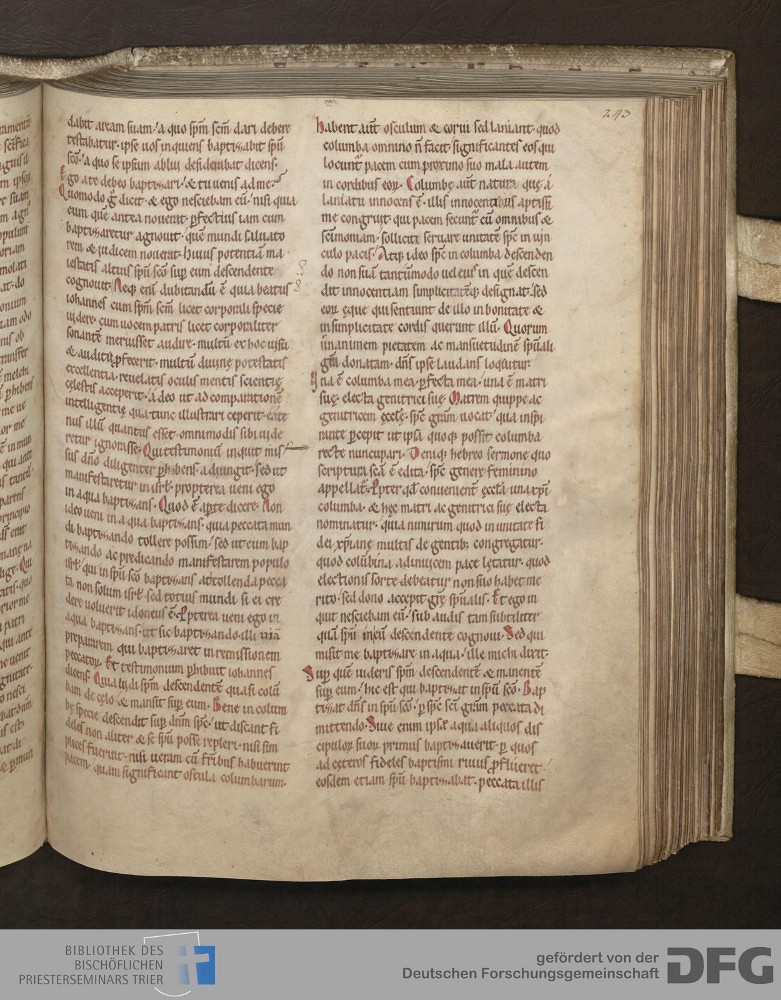 243
dabit aream suam. a quo spm scm dari debere
testabatur. ipse uos inquiens baptizabit spu
sco. a quo se ipsum ablui desiderabat dicens.
Ego a te debeo baptizari. & tu uenis ad me.
Quomodo g dicit. & ego nesciebam eu. nisi quia
eum que antea nouerat pfectius iam cum
baptizaretur agnouit. que mundi saluato
rem & iudicem nouerat. huius potentia ma
iestatis altius spu sco sup eum descendente
cognouit. Neq eni dubitandu e quia beatus
iohannes cum spm scm licet corporali specie
uidere. cum uocem patris licet corporaliter
sonante meruisset audire. multu ex hoc uisu
& auditu pfecerit. multu diuine potestatis
excellentia reuelatis oculis mentis scientie
celestis acceperit. adeo ut ad comparatione
intelligentie qua tunc illustrari ceperit
nus illu quantus esset omnimodis sibi uide
retur ignorasse. Qui testimoniu inquit mis
sus dno diligenter phibens. adiungit. sed ut
manifestaretur in isrl. propterea ueni ego
in aqua baptizans. Quod e apte dicere. Non
ideo ueni in aqua baptizans. quia peccata mun
di baptizando tollere possim. sed ut eum bap
tizando ac predicando manifestarem populo
isrl. qui in spu sco baptizans attollenda pecca
ta non solum isrl. sed totius mundi si ei cre
dere uoluerit idoneus e. Ppterea ueni ego in
aqua baptizans. ut sic baptizando illi uia
prepararem qui baptizaret in remissionem
peccator. Et testimonium phibuit iohannes
dicens. Quia uidi spm descendente quasi colu
bam de celo & mansit sup eum. Bene in colum
be specie descendit sup dnm spc. ut discant fi
deles non aliter & se spu posse repleri. nisi sim
plices fuerint. nisi ueram cu fribus habuerint
pacem. quam significant oscula columbarum.
habent aut osculum & corui sed laniant. quod
columba omnino n facit. significantes eos qui
locunt pacem cum proximo suo mala autem
in cordibus eor. Columbe aut natura que a
laniatu innocens e. illis innocentibus aptissi
me congruit. qui pacem secunt cu omnibus &
scimoniam. solliciti seruare unitate spc in uin
culo pacis. Atq ideo spc in columba descenden
do non sua tantumodo uel eius in que descen
dit innocentiam simplicitateq designat. sed
eor eque qui sentiunt de illo in bonitate &
in simplicitate cordis querunt illu. Quorum
unanimem pietatem ac mansuetudine spuali
gra donatam. dns ipse laudans loquitur.
Una e columba mea. pfecta mea. una e matri
sue. electa genitrici sue. Matrem quippe ac
genitricem eccle. spc gram uocat. qua inspi
rante pcepit ut ipsa quoq possit columba
recte nuncupari. Deniq hebreo sermone quo
scriptura sca e edita. spc genere feminino
appellat. Ppter qd conuenient eccla una xpi
columba. & hec matri ac genitrici sue electa
nominatur. quia nimirum quod in unitate fi
dei xpiane multis de gentib; congregatur.
quod columbina adinuicem pace letatur. quod
electionis sorte debeatur non suo habet me
rito. sed dono accepit gre spualis. Et ego in
quit nesciebam eu. sub audis tam subtiliter
qua spu in eu descendente cognoui. Sed qui
misit me baptizare in aqua. ille michi dixit.
Sup que uideris spm descendente & manente
sup eum. hic est qui baptizat in spu sco. Bap
tizat dns in spu sco. p spc sci gram peccata di
mittendo. Siue enim ipse aqua aliquos dis
cipulor suor primus baptizauerit p quos
ad ceteros fideles baptismi riuus pflueret.
eosdem etiam spu baptizabat. peccata illis
BIBLIOTHEK DES
BISCHÖFLICHEN
PRIESTERSEMINARS TRIER
gefördert von der
Deutschen Forschungsgemeinschaft
DFG